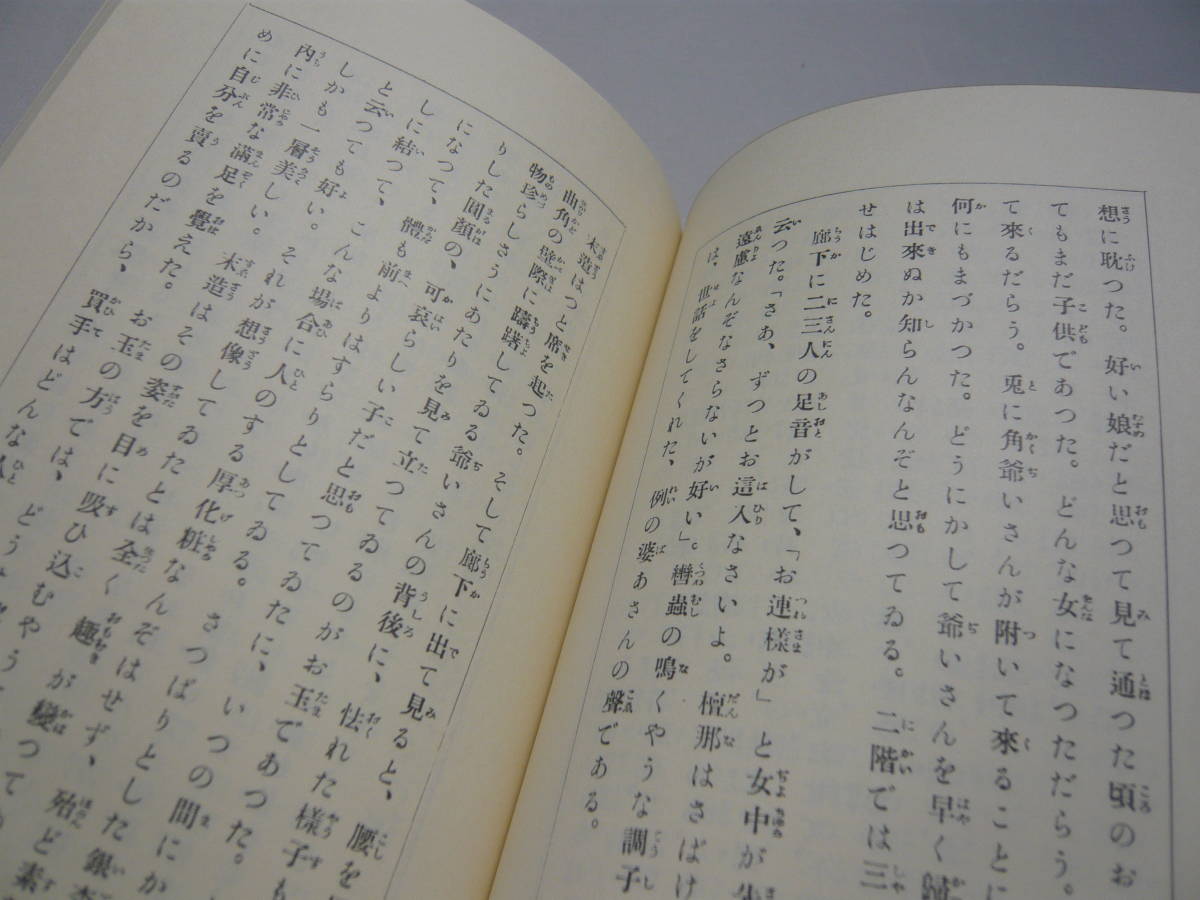 想に耽つた。好い娘だと思つて見て通つた頃のお
てもまだ子供であつた。どんな女になつただらう。
て來るだらう。兎に角爺いさんが附いて來ることに
何にもまづかつた。どうにかして爺いさんを早く歸
は出來ぬか知らんなんぞと思つてゐる。二階では三
せはじめた。
廊下に二三人の足音がして、「お連樣が」と女中が先
云つた。「さあ、ずつとお這入なさいよ。檀那はさばけ
遠慮なんぞなさらないが好い」。轡蟲の鳴くやうな調子
は、世話をしてくれた、例の婆あさんの聲である。
末造はつと席を起つた。そして廊下に出て見ると、腰を
曲角の壁際に躊躇してゐる爺いさんの背後に、怯れた樣子も
物珍らしさうにあたりを見て立つてゐるのがお玉であつた。
りした圓顏の、可哀らしい子だと思つてゐたに、いつの間にか
になつて、體も前よりはすらりとしてゐる。さつぱりとした銀杏
しに結つて、こんな場合に人のする厚化粧なんぞはせず、殆ど素
と云つても好い。それが想像してゐたとは全く趣が變つて
しかも一層美しい。末造はその姿を目に吸ひ込むやう
內に非常な滿足を覺えた。お玉の方では、どう
めに自分を賣るのだから、買手はどんな人